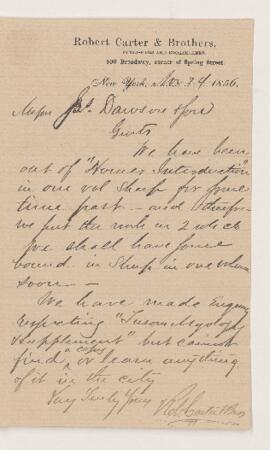 Robert Carter & Brothers,
530 Broadway, corner of Spring Street.
New York, Nov 24 1856
Mess Dawson & Son
Gents
We have been
out of "Hornes Introduction"
in one vol Sheep for some
time past — and therefore
we put the work in 2 vols
We shall have some
bound in Sheep in one volume
soon —
We have made Enquiry
respecting
Supplement" but cannot
find a copy or learn anything
of it in the city
Very Truly Yours
Robt Carter & Bros